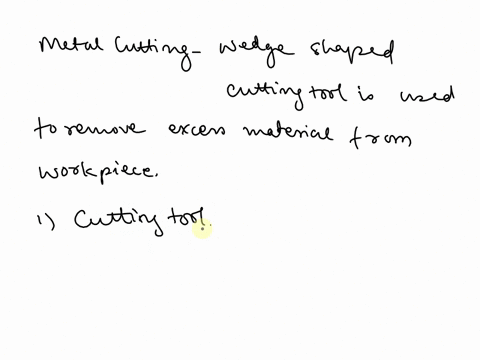 Metal Cutting - Wedge shaped
cutting tool is used
to remove excess material from
workpiece.
1) Cutting tool.